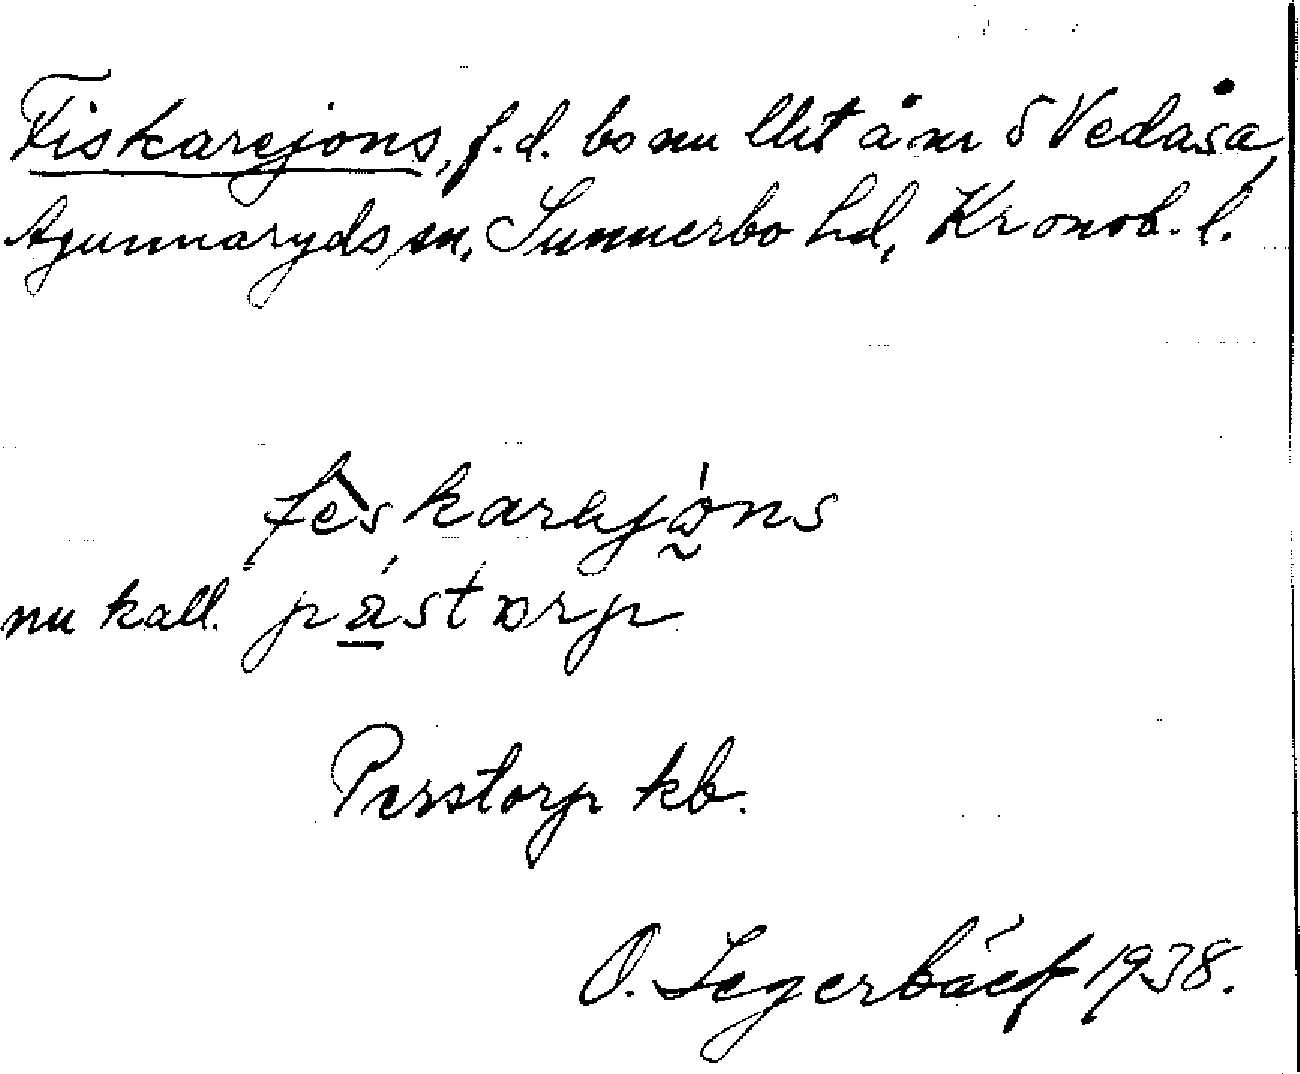 Fiskarejons, f.d. bo nu llit åm S Vedåsa,
Agunnaryds sn, Sunnerbo hd, Kronob. l.
fèskarejóns
nu kall. pástorp
Perstorp kb.
O. Segerbäck 1938.